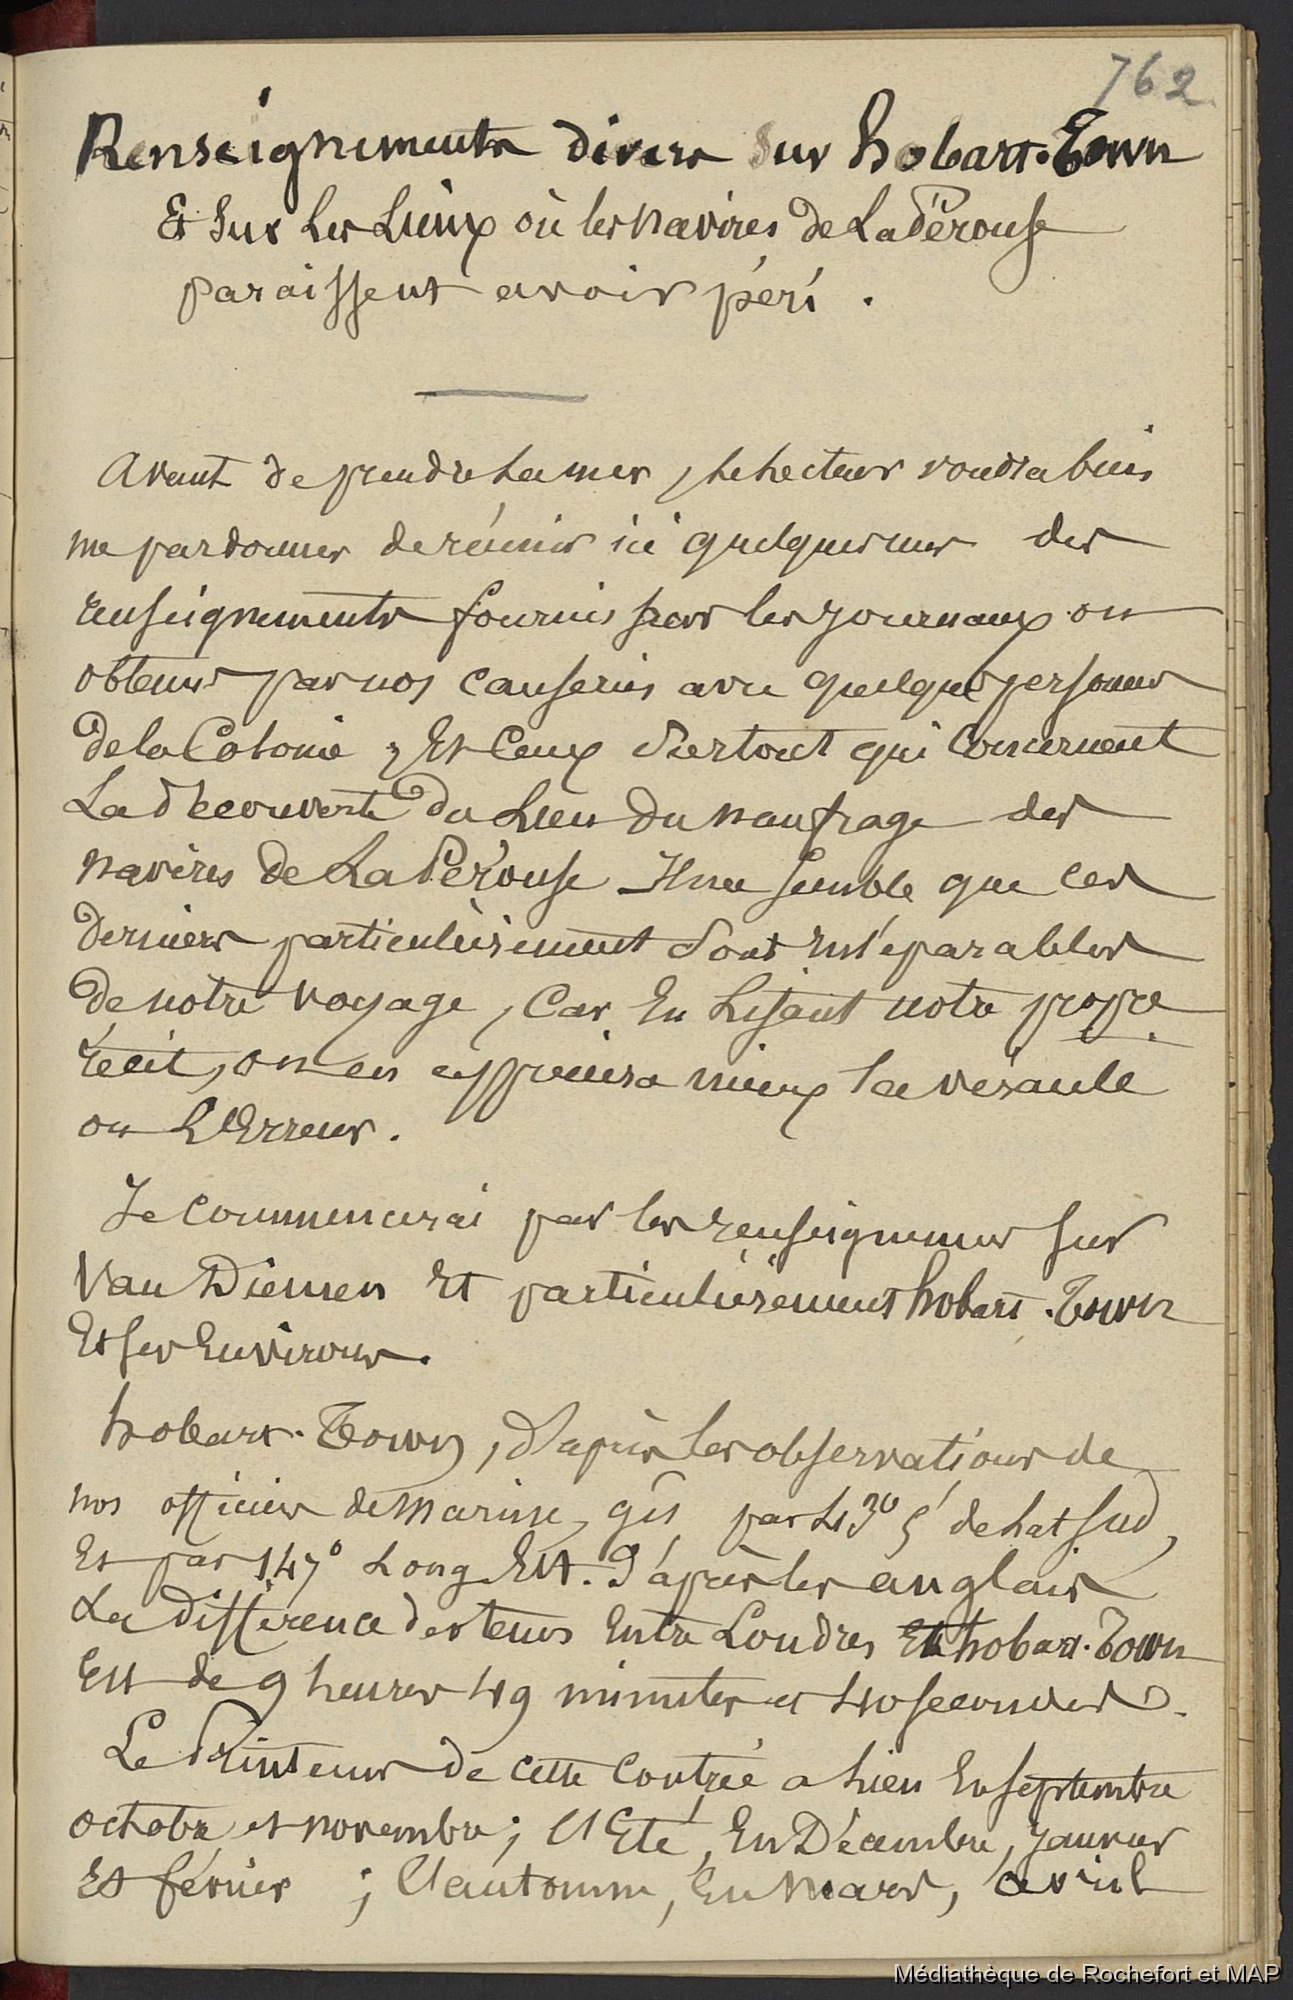 762.
Renseignements divers sur hobart-Town
Et Sur Les Lieux où les navires de La Pérouse
paraissent avoir péri.
Avant de prendre La mer, Le Lecteur voudra bien
me pardonner de réunir ici quelques uns des
renseignements fournis par les journaux ou
obtenus par nos causeries avec quelques personnes
de la Colonie, Et Ceux Surtout qui Concernent
La découverte du Lieu du naufrage des
navires de La Pérouse. Il me semble que ces
derniers particulièrement Sont inséparables
de notre voyage, Car En Lisant notre propre
récit, on en appréciera mieux la
ou L'Erreur.
Je Commencerai par les sur
Van Diemen Et particulièrement hobart-Town
Et ses Environs.
hobart-Town, d'après Les observations de
nos officiers de marine, gît par 43° 5' de Lat Sud,
Et par 147° Long Est. D'après les anglais
La différence des tems Entre Londres Et hobart-Town
Est de 9 heures 49 minutes et 40 secondes.
Le Printems de cette Contrée a Lieu En septembre
octobre et novembre; L'Eté, En Décembre, janvier
Et février; L'automne, En Mars, avril
Médiathèque de Rochefort et MAP